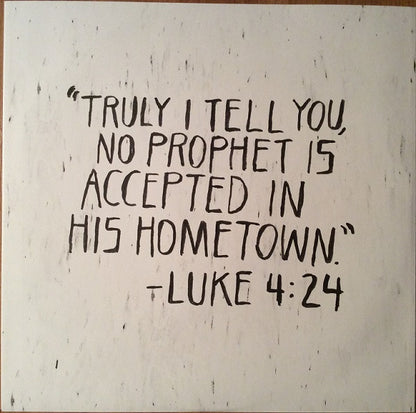 “TRULY I TELL YOU,
NO PROPHET IS
ACCEPTED IN
HIS HOMETOWN.”
-LUKE 4:24